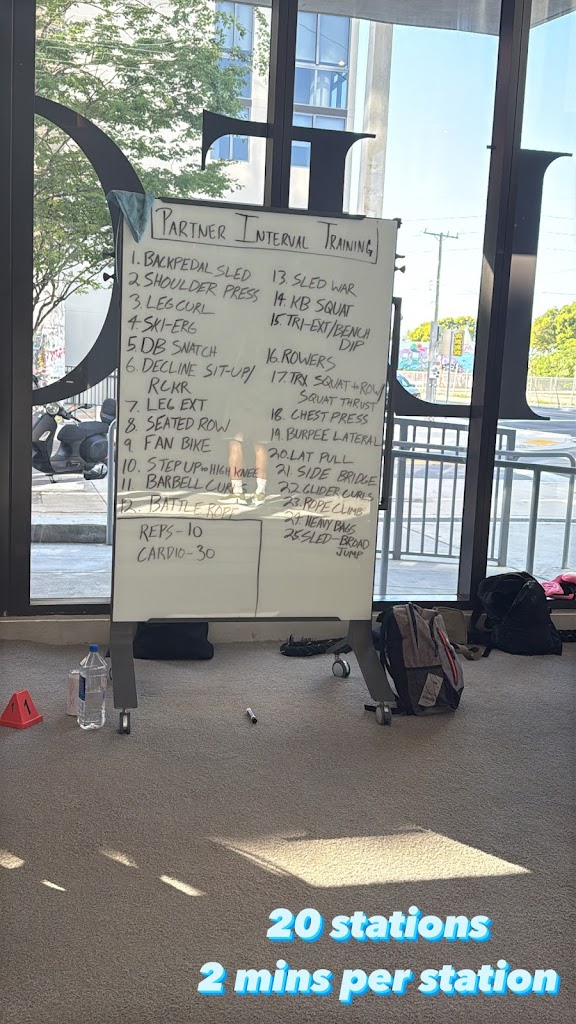 PARTNER INTERVAL TRAINING
1. BACKPEDAL SLED
2 SHOULDER PRESS
3. LEG CURL
4. SKI-ERG
5. DB SNATCH
6. DECLINE SIT-UP/
RCKR
7. LEG EXT
8. SEATED ROW
9. FAN BIKE
10. STEP UP HIGH KNEE
11. BARBELL CURLS
12. BATTLE ROPE
13. SLED WAR
14. KB SQUAT
15. TRI-EXT/BENCH
DIP
16. ROWERS
17. TRX SQUAT+ROW/
SQUAT THRUST
18. CHEST PRESS
19. BURPEE LATERAL
20. LAT PULL
21. SIDE BRIDGE
22. GLIDER CURLS
23. ROPE CLIMB
24. HEAVY BAGS
25 SLED-BROAD
JUMP
REPS-10
CARDIO-30
1
20 stations
2 mins per station